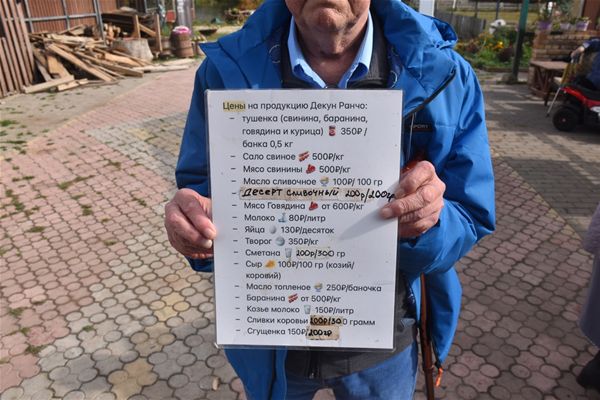 Цены на продукцию Декун Ранчо:
- тушенка (свинина, баранина,
говядина и курица) 350₽/
банка 0,5 кг
- Сало свиное 500₽/кг
- Мясо свинины 500₽/кг
- Масло сливочное 100₽/ 100 гр
ДЕСЕРТ СЛИВОЧНЫЙ 200р/200гр
- Мясо Говядина от 600₽/кг
- Молоко 80₽/литр
- Яйца 130₽/десяток
- Творог 350₽/кг
- Сметана 200р/300 гр
- Сыр 100₽/100 гр (козий/
коровий)
- Масло топленое 250₽/баночка
- Баранина от 500₽/кг
- Козье молоко 150₽/литр
- Сливки коровьи 200р/300 грамм
- Сгущенка 150₽/200гр
SPORT